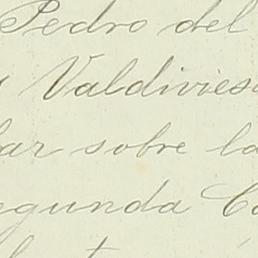 Pedro del
y Valdivies
lar sobre la
egunda Co